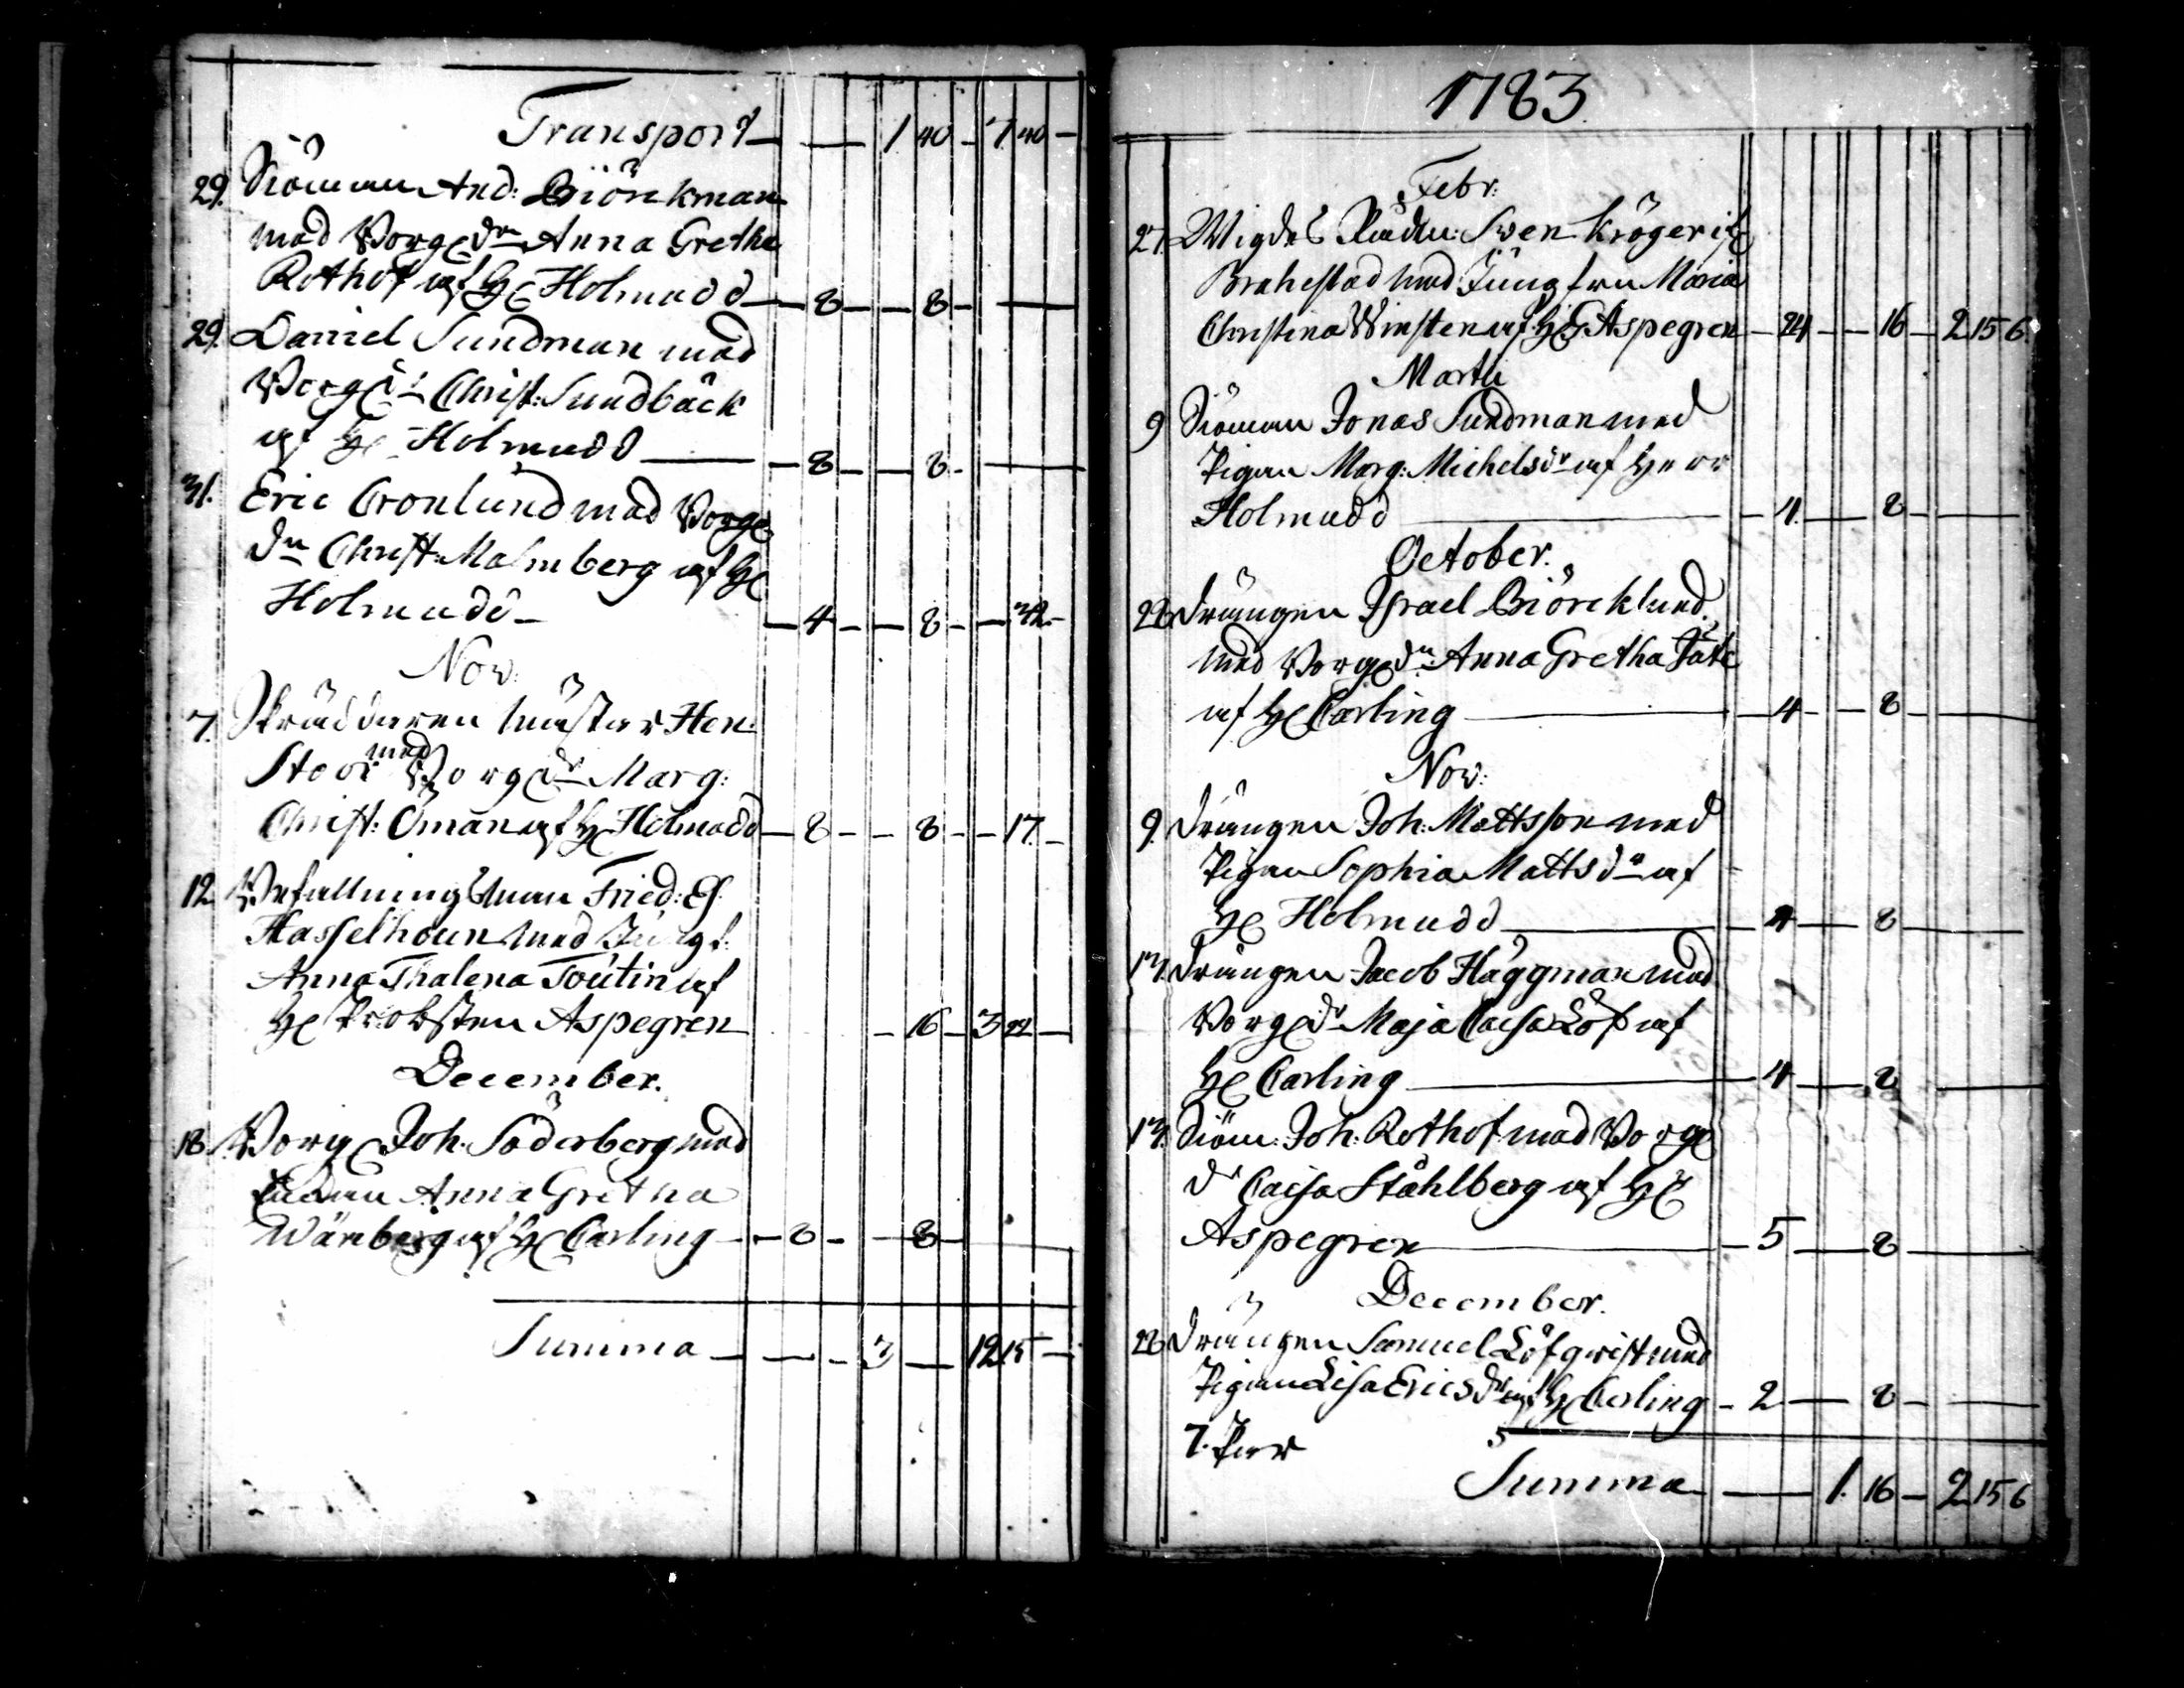 Transport — — 1 40 — 7 40 —
29. Siöman And: Biörckman
med Borge dr Anna Gretha
Rothof af H Holmudd — 8 — — 8 — —
29. Daniel Sundman med
Borg dr Christ: Sundbäck
af H Holmudd — 8 — — 8 — —
31. Eric Cronlund med Borge
dr Christ: Malmberg af H
Holmudd — 4 — — 8 — — 32 —
Nov:
7. Skräddaren mäster Hen:
Stoor med Borg dr Marg:
Christ: Öman af H Holmudd — 8 — — 8 — — 17. —
12. Befallningsman Fried: E:
Hasselhoun med Jungf:
Anna Thalena Toutin af
H Probsten Aspegren — 16 — 3 22 —
December.
18. Borg Joh. Söderberg med
Enkan Anna Gretha
Wärnberg af H Carling — 8 — — 8 —
Summa — — — 3 — 12 15 —
1783.
Febr:
27. Swen Kröger if
Brahestad med Jungfru Maria
Christina Winsten af H Aspegren — 24 — — 16 — 2 15 6.
Martii
9 Siöman Jonas Sundman med
Pigan Marg: Michelsdr af Herr
Holmudd — 4 — 8 — —
October.
28. Drängen Israel Biörcklund
med Borge dr Anna Gretha
af H Carling — 4 — — 8 — —
Nov:
9. Drängen Joh: Mattsson med
Pigan Sophia Matts dr af
H Holmudd — 4 — 8 —
13. Drängen Jacob Häggman med
Borge dr Maja Caisa Löf af
H Carling — 4 — 8 —
13. Siöm: Joh: Rothof med Borge
dr Caisa Ståhlberg af H
Aspegren — 5 — 8 —
December.
28. Drängen Samuel Löfqvist med
Pigan Lisa Ericsdr af H Carling — 2 — 8 — —
7. Par
Summa — 1. 16 — 2 15 6